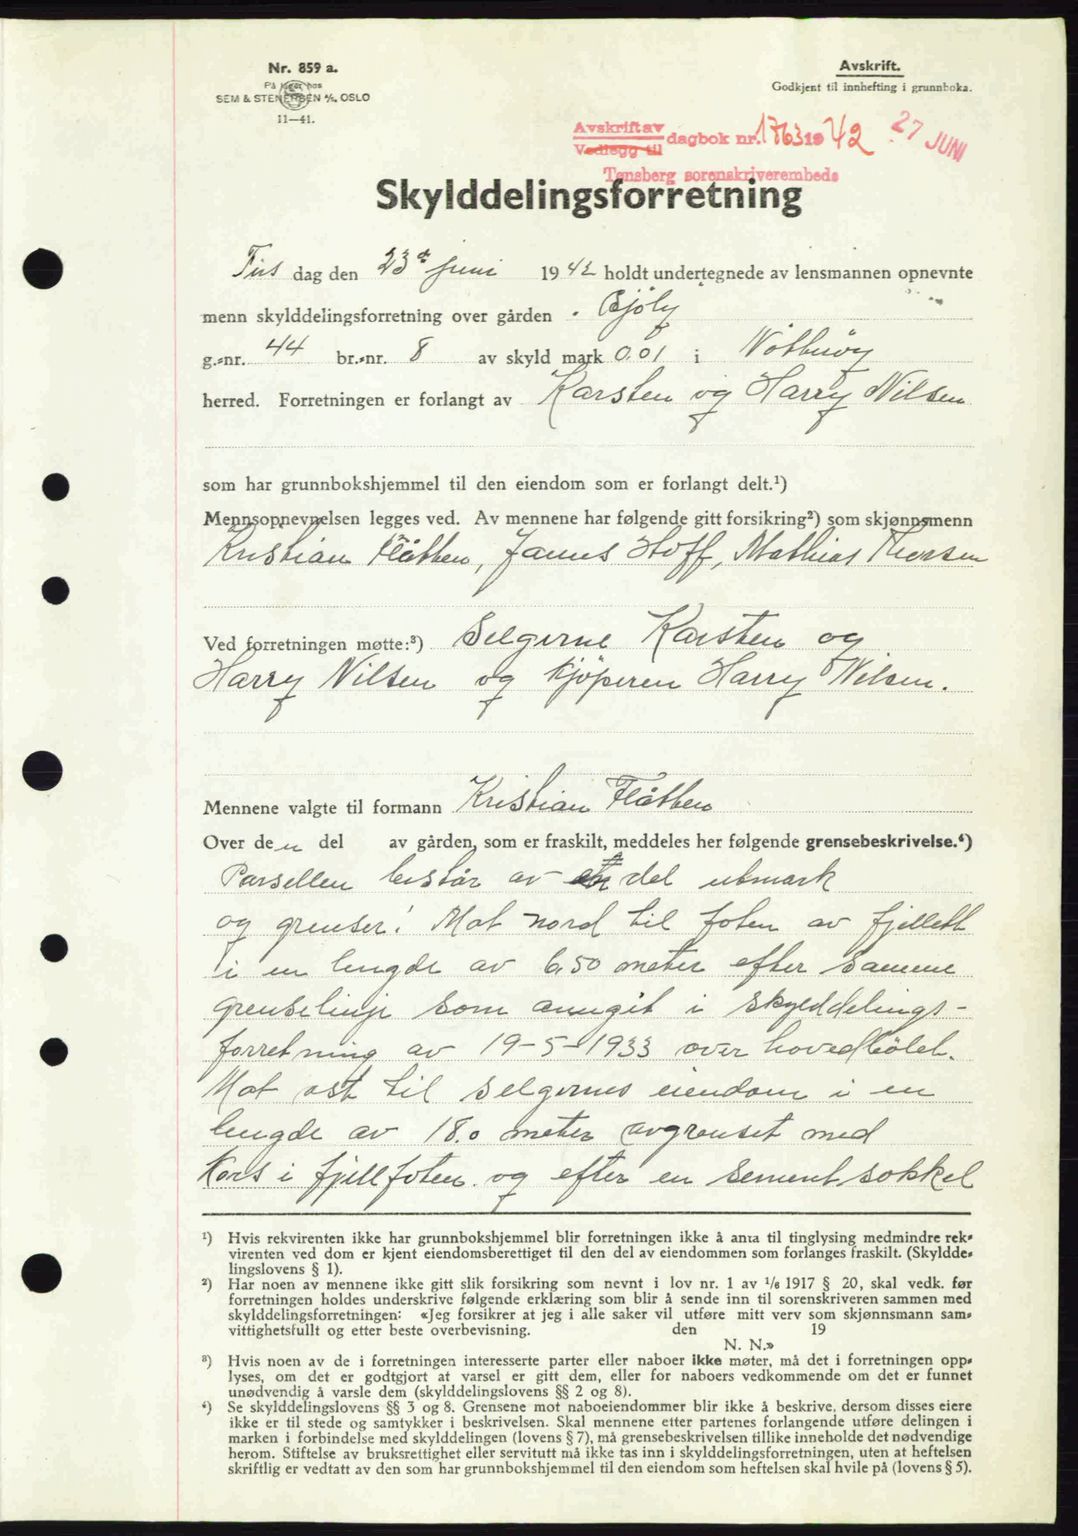 Nr. 859 a.
På lager hos
SEM & STENERSEN A/S, OSLO
11—41.
Avskrift.
Godkjent til innhefting i grunnboka.
Avskrift av
Vedlegg til
dagbok nr. 1763 1942
27 JUNI
Tønsberg sorenskriverembede
Skylddelingsforretning
Tirs dag den 23de juni 1942 holdt undertegnede av lensmannen opnevnte
menn skylddelingsforretning over gården
g.-nr. 44 br.-nr. 8 av skyld mark 0.01 i Nøtterøy
herred. Forretningen er forlangt av Karsten og Harry Nilsen
som har grunnbokshjemmel til den eiendom som er forlangt delt.¹)
Mennsopnevnelsen legges ved. Av mennene har følgende gitt forsikring²) som skjønnsmenn
Kristian Flåtten, James Hoff, Mathias Thorsen
Ved forretningen møtte:³) Selgerne Karsten og
Harry Nilsen og kjöperen Harry Nilsen.
Mennene valgte til formann Kristian Flåtten
Over den del av gården, som er fraskilt, meddeles her følgende grensebeskrivelse.⁴)
Parsellen består av en del utmark
og grenser: Mot nord til foten av fjellett
i en lengde av 6,50 meter efter samme
grenselinje som anngit i skylddelings-
forretning av 19-5-1933 over hovedbölet.
Mot ost til selgernes eiendom i en
lengde av 18.0 meter avgrenset med
Kors i fjellfoten og efter en sementsokkel
¹) Hvis rekvirenten ikke har grunnbokshjemmel blir forretningen ikke å anta til tinglysing medmindre rek-
virenten ved dom er kjent eiendomsberettiget til den del av eiendommen som forlanges fraskilt. (Skyldde-
lingslovens § 1).
²) Har noen av mennene ikke gitt slik forsikring som nevnt i lov nr. 1 av 1/6 1917 § 20, skal vedk. før
forretningen holdes underskrive følgende erklæring som blir å sende inn til sorenskriveren sammen med
skylddelingsforretningen: «Jeg forsikrer at jeg i alle saker vil utføre mitt verv som skjønnsmann sam-
vittighetsfullt og etter beste overbevisning. den 19
N. N.»
³) Hvis noen av de i forretningen interesserte parter eller naboer ikke møter, må det i forretningen opp-
lyses, om det er godtgjort at varsel er gitt dem, eller for naboers vedkommende om det er funnet
unødvendig å varsle dem (skylddelingslovens §§ 2 og 8).
⁴) Se skylddelingslovens §§ 3 og 8. Grensene mot naboeiendommer blir ikke å beskrive, dersom disses eiere
ikke er til stede og samtykker i beskrivelsen. Skal mennene etter partenes forlangende utføre delingen i
marken i forbindelse med skylddelingen (lovens § 7), må grensebeskrivelsen tillike inneholde det nødvendige
herom. Stiftelse av bruksrettighet eller servitutt må ikke tas inn i skylddelingsforretningen, uten at heftelsen
skriftlig er vedtatt av den som har grunnbokshjemmel til den eiendom som heftelsen skal hvile på (lovens § 5).